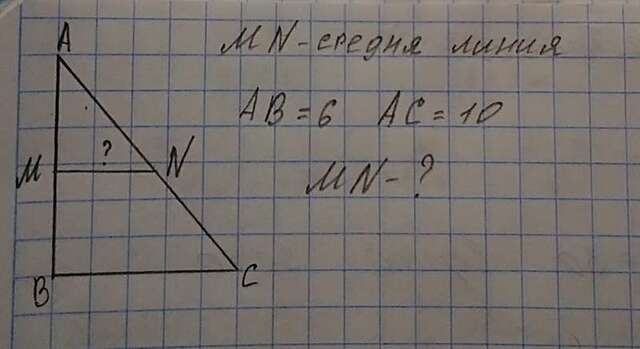 A
MN - средня линия
AB = 6 AC = 10
?
M
N
MN - ?
B
C